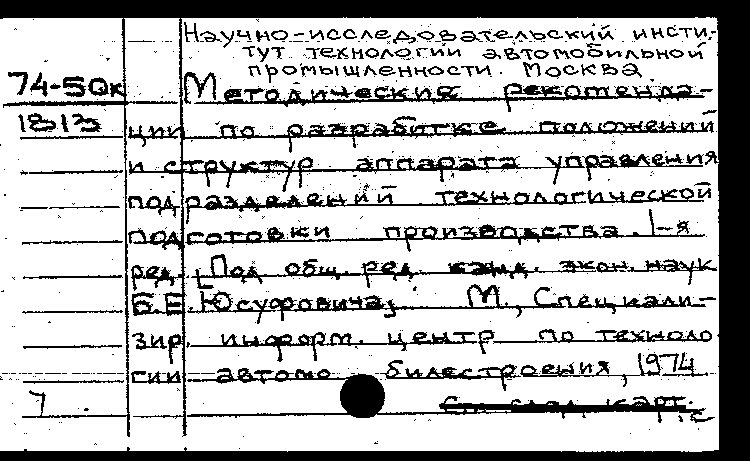 Научно-исследовательский инсти-
тут технологии автомобильной
промышленности. Москва.
74-50к
Методические рекоменда-
1813
ции по разработке положений
и структур аппарата управления
подразделений технологической
подготовки производства. 1-я
ред. Под общ. ред. канд. экон. наук
Б.Е. Юсуфовича, М., Специали-
зир. информ. центр по техноло
гии автомобилестроения, 1974
7
См. след. карт.